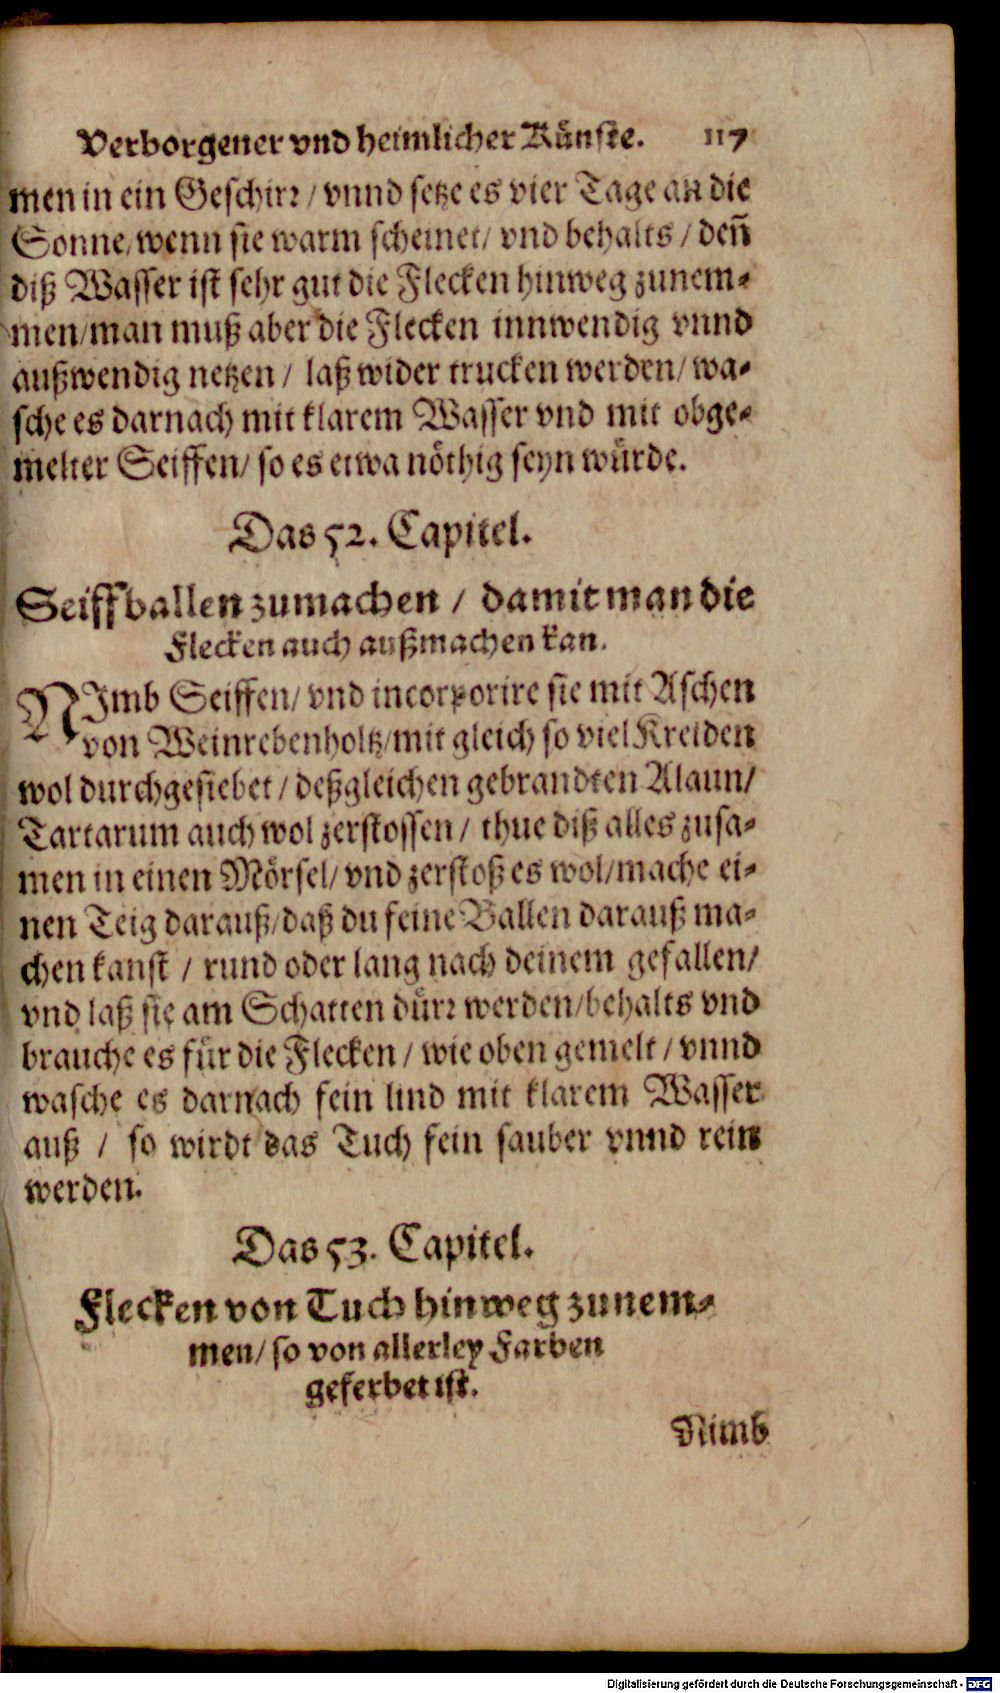 Verborgener vnd heimlicher Künste. 117
men in ein Geschirr / vnnd setze es vier Tage an die
Sonne / wenn sie warm scheinet / vnd behalts / deñ
diß Wasser ist sehr gut die Flecken hinweg zunem-
men / man muß aber die Flecken innwendig vnnd
außwendig netzen / laß wider trucken werden / wa-
sche es darnach mit klarem Wasser vnd mit obge-
melter Seiffen / so es etwa nöthig seyn würde.
Das 52. Capitel.
Seiffballen zumachen / damit man die
Flecken auch außmachen kan.
NImb Seiffen / vnd incorporire sie mit Aschen
von Weinrebenholtz / mit gleich so viel Kreiden
wol durchgesiebet / deßgleichen gebrandten Alaun /
Tartarum auch wol zerstossen / thue diß alles zusa-
men in einen Mörsel / vnd zerstoß es wol / mache ei-
nen Teig darauß / daß du feine Ballen darauß ma-
chen kanst / rund oder lang nach deinem gefallen /
vnd laß sie am Schatten dürr werden / behalts vnd
brauche es für die Flecken / wie oben gemelt / vnnd
wasche es darnach fein lind mit klarem Wasser
auß / so wirdt das Tuch fein sauber vnnd rein
werden.
Das 53. Capitel.
Flecken von Tuch hinweg zunem-
men / so von allerley Farben
geferbet ist.
Nimb
Digitalisierung gefördert durch die Deutsche Forschungsgemeinschaft - DFG